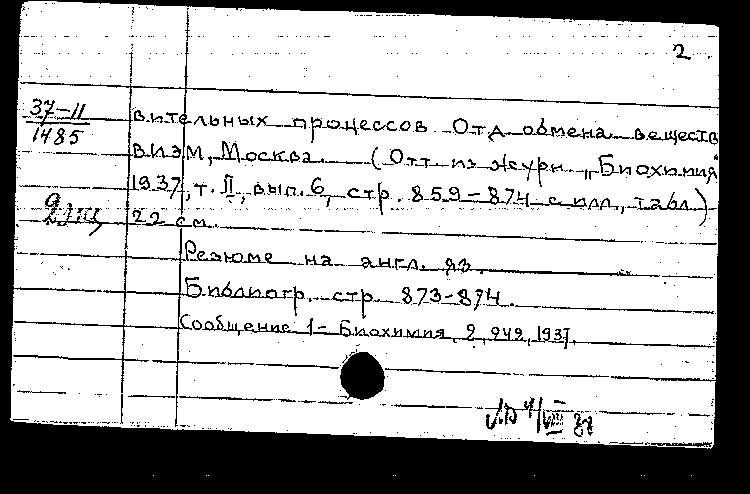 2
37-II
1485
вительных процессов. Отд. обмена веществ
ВИЭМ, Москва. (Отт. из журн. „Биохимия"
1937, т. II, вып. 6, стр. 859-874 с илл., табл.)
22 см.
Резюме на англ. яз.
Библиогр. стр. 873-874.
Сообщение 1- Биохимия, 2, 242, 1937.